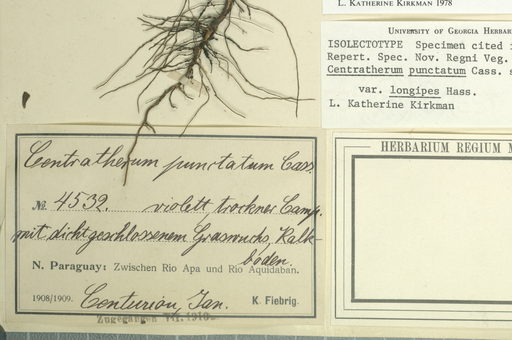 L. KATHERINE KIRKMAN 1978
UNIVERSITY OF GEORGIA HERBAR
ISOLECTOTYPE Specimen cited i
Repert. Spec. Nov. Regni Veg.
Centratherum punctatum Cass. s
var. longipes Hass.
L. Katherine Kirkman
HERBARIUM REGIUM M
Centratherum punctatum Cass.
No. 4532. violett, trockner Camp.
mit dichtgeschlossenem Graswuchs, Kalk-
boden.
N. Paraguay: Zwischen Rio Apa und Rio Aquidaban.
1908/1909. Centurion, Jan. K. Fiebrig.
Zugegangen VII. 1910